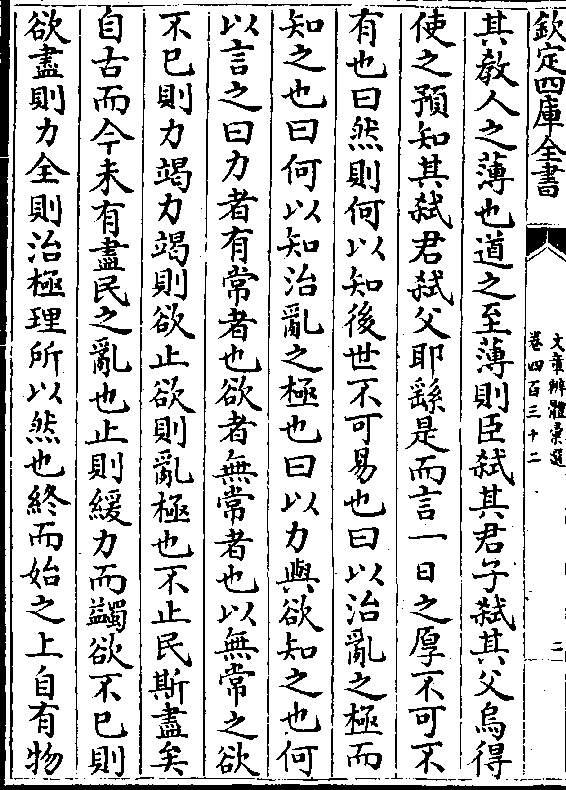 欽定四庫全書
文章辨體彙選
卷四百三十二
二
其教人之薄也道之至薄則臣弑其君子弑其父烏得
使之預知其弑君弑父耶繇是而言一日之厚不可不
有也曰然則何以知後世不可易也曰以治亂之極而
知之也曰何以知治亂之極也曰以力與欲知之也何
以言之曰力者有常者也欲者無常者也以無常之欲
不已則力竭力竭則欲止欲則亂極也不止民斯盡矣
自古而今未有盡民之亂也止則緩力而蠲欲不已則
欲盡則力全則治極理所以然也終而始之上自有物